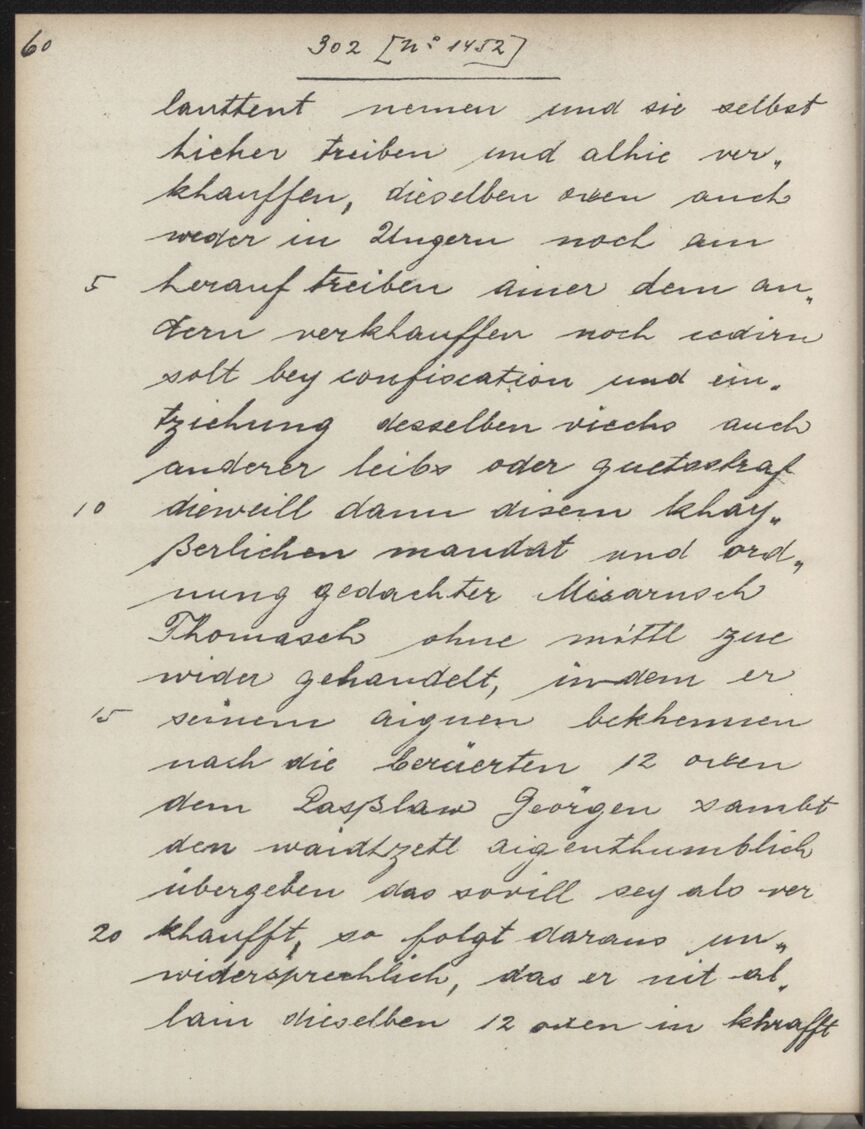 60
302 [No 1452]
lauttent nemen und sie selbst
hicher treiben und alhie ver„
khauffen, dieselben oxen auch
weder in Ungern noch am
5 herauf treiben ainer dem an„
dern verkhauffen noch cedirn
solt bey confiscation und ein„
tziehung desselben viechs auch
anderer leibs oder guetsstraf
10 dieweill dann disem khay„
ßerlichen mandat und ord„
nung gedachter Misarusch
Thomasch ohne mittl zue
wider gehandelt, in dem er
15 seinem aignen bekhennen
nach die berüerten 12 oxen
dem Laßlaw Geörgen sambt
den waidtzetl aigenthumblich
übergeben das sovill sey als ver
20 khaufft, so folgt daraus un„
widersprechlich, das er nit al„
lain dieselben 12 oxen in khrafft